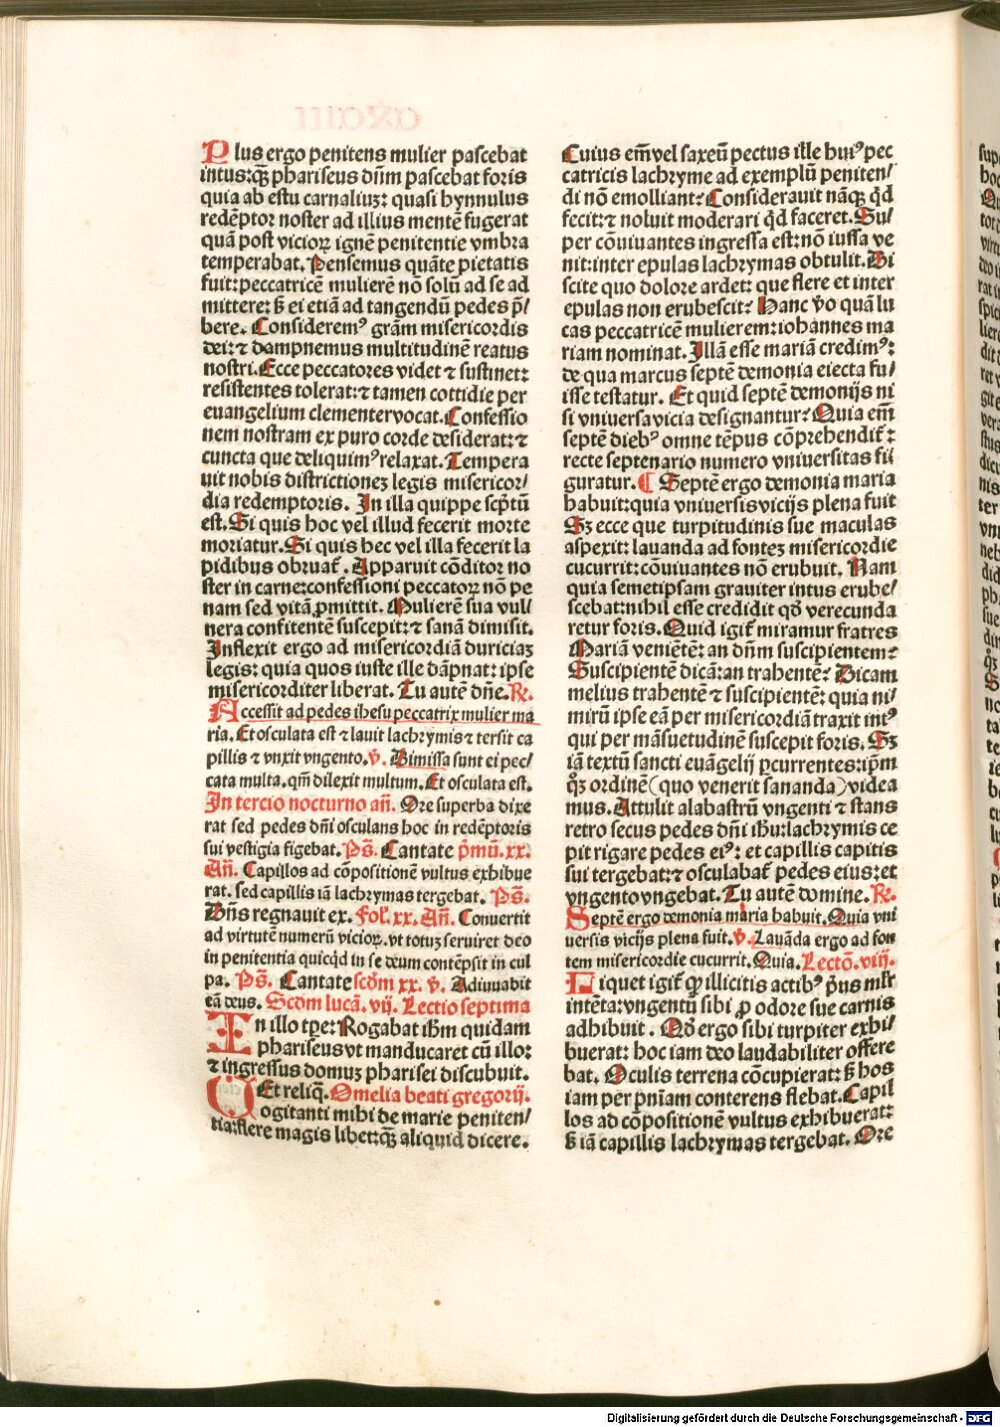 Plus ergo penitens mulier pascebat
intus: qꝫ phariseus dñm pascebat foris
quia ab estu carnaliuꝫ: quasi hynnulus
redẽptor noster ad illius mentẽ fugerat
quã post vicioꝝ ignẽ penitentie vmbra
temperabat. Pensemus quãte pietatis
fuit: peccatricẽ mulierẽ nõ solũ ad se ad
mittere: sꝫ ei etiã ad tangendũ pedes p̃/
bere. Consideremꝰ grãm misericordis
dei: ⁊ dampnemus multitudinẽ reatus
nostri. Ecce peccatores videt ⁊ sustinet:
resistentes tolerat: ⁊ tamen cottidie per
euangelium clementer vocat. Confessio
nem nostram ex puro corde desiderat: ⁊
cuncta que deliquimꝰ relaxat. Tempera
uit nobis districtioneꝫ legis misericor/
dia redemptoris. In illa quippe scp̃tũ
est. Si quis hoc vel illud fecerit morte
moriatur. Si quis hec vel illa fecerit la
pidibus obruat᷑. Apparuit cõditor no
ster in carne: confessioni peccatoꝝ nõ pe
nam sed vitã ꝓmittit. Mulierẽ sua vul/
nera confitentẽ suscepit: ⁊ sanã dimisit.
Inflexit ergo ad misericordiã duriciaꝫ
legis: quia quos iuste ille dãpnat: ipse
misericorditer liberat. Tu autẽ dñe. ℞.
Accessit ad pedes ihesu peccatrix mulier ma
ria. Et osculata est ⁊ lauit lachrymis ⁊ tersit ca
pillis ⁊ vnxit vngento. ℣. Dimissa sunt ei pec/
cata multa. qm̃ dilexit multum. Et osculata est.
In tercio nocturno añ. Ore superba dixe
rat sed pedes dñi osculans hoc in redẽptoris
sui vestigia figebat. Pš. Cantate p̃mũ. xx.
Añ. Capillos ad cõpositionẽ vultus exhibue
rat. sed capillis iã lachrymas tergebat. Pš.
Dñs regnauit ex. fol. xx. Añ. Conuertit
ad virtutẽ numerũ vicioꝝ. vt totuꝫ seruiret deo
in penitentia quicqd in se deum contẽpsit in cul
pa. Pš. Cantate scd̃m xx. ℣. Adiuuabit
eã deus. Scd̃m lucã. vij. Lectio septima
In illo tp̃e: Rogabat ihm̃ quidam
phariseus vt manducaret cũ illo:
⁊ ingressus domuꝫ pharisei discubuit.
Et reliq̃. Omelia beati gregorij.
Cogitanti mihi de marie peniten/
tia: flere magis libet: qꝫ aliquid dicere.
Cuius em̃ vel saxeũ pectus ille huiꝰ pec
catricis lachryme ad exemplũ peniten/
di nõ emolliant? Considerauit nãqꝫ qd
fecit: ⁊ noluit moderari qd faceret. Su/
per cõuiuantes ingressa est: nõ iussa ve
nit: inter epulas lachrymas obtulit. Di
scite quo dolore ardet: que flere et inter
epulas non erubescit? Hanc v̊o quã lu
cas peccatricẽ mulierem: iohannes ma
riam nominat. Illã esse mariã credimꝰ:
de qua marcus septẽ demonia eiecta fu/
isse testatur. Et quid septẽ demonijs ni
si vniuersa vicia designantur? Quia em̃
septẽ diebꝰ omne tẽpus cõprehendit᷑:
recte septenario numero vniuersitas fi/
guratur. ¶ Septẽ ergo demonia maria
habuit: quia vniuersis vicijs plena fuit
Sꝫ ecce que turpitudinis sue maculas
aspexit: lauanda ad fonteꝫ misericordie
cucurrit: cõuiuantes nõ erubuit. Nam
quia semetipsam grauiter intus erube/
scebat: nihil esse credidit qđ verecunda
retur foris. Quid igit᷑ miramur fratres
Mariã veniẽtẽ: an dñm suscipientem?
Suscipientẽ dicã: an trahentẽ? Dicam
melius trahentẽ ⁊ suscipientẽ: quia ni/
mirũ ipse eã per misericordiã traxit intꝰ
qui per mãsuetudinẽ suscepit foris. Sꝫ
iã textũ sancti euãgelij ꝑcurrentes: ip̃m
qꝫ ordinẽ (quo venerit sananda) videa
mus. Attulit alabastrũ vngenti ⁊ stans
retro secus pedes dñi ihu: lachrymis ce
pit rigare pedes eiꝰ: et capillis capitis
sui tergebat: ⁊ osculabat᷑ pedes eius: et
vngento vngebat. Tu autẽ domine. ℞.
Septẽ ergo demonia maria habuit. Quia vni
uersis vicijs plena fuit. ℣. Lauãda ergo ad fon
tem misericordie cucurrit. Quia. Lectõ. viij.
Liquet igit᷑ ꝙ illicitis actibꝰ p̃us mlr
intẽta: vngentũ sibi ꝓ odore sue carnis
adhibuit. Qđ ergo sibi turpiter exhi/
buerat: hoc iam deo laudabiliter offere
bat. Oculis terrena cõcupierat: sꝫ hos
iam per pñiam conterens flebat. Capil
los ad cõpositionẽ vultus exhibuerat:
sꝫ iã capillis lachrymas tergebat. Ore
Digitalisierung gefördert durch die Deutsche Forschungsgemeinschaft - DFG